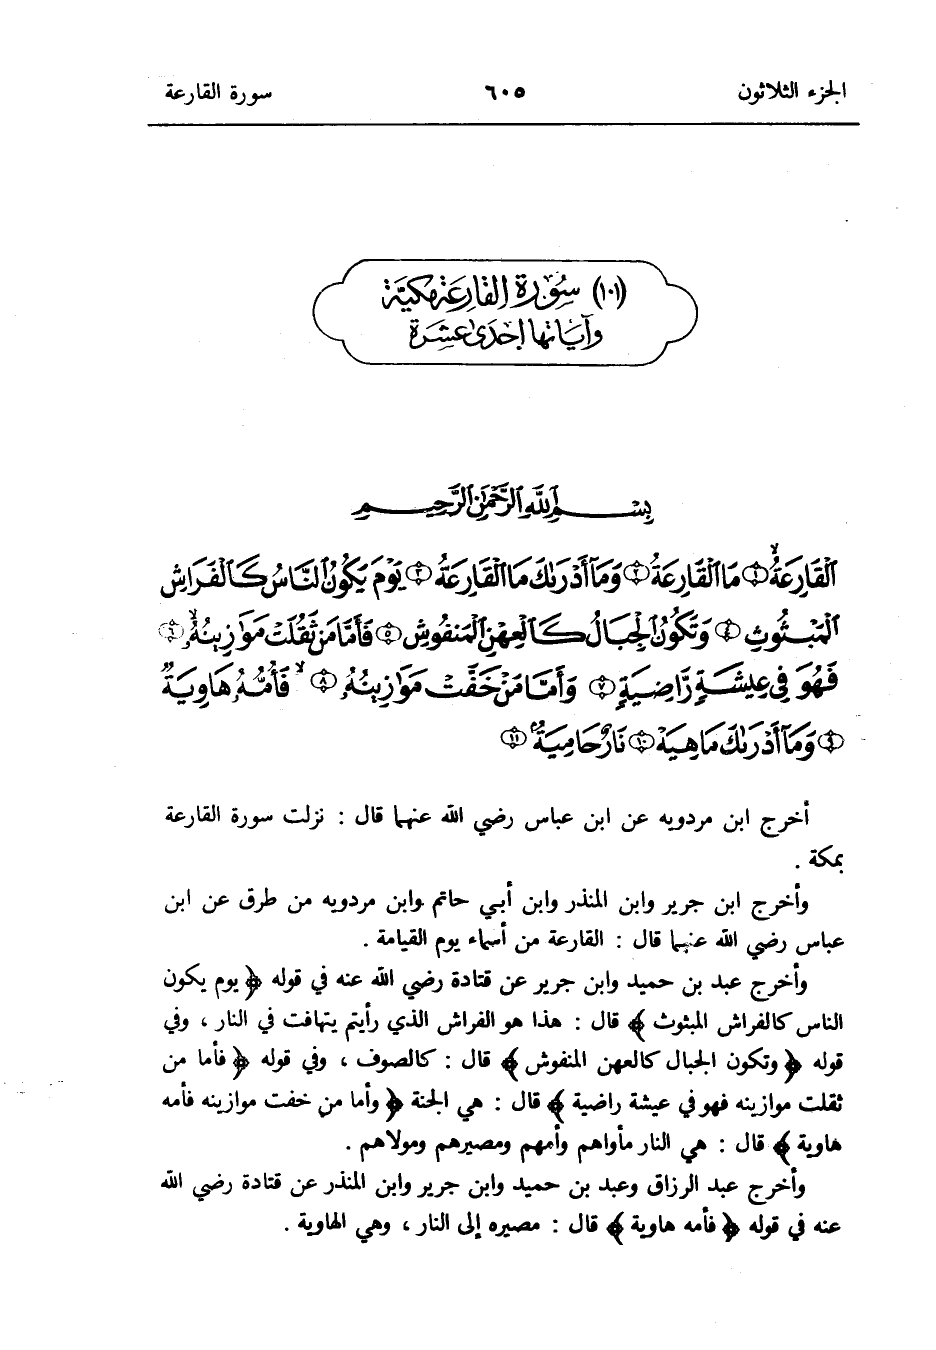 الجزء الثلاثون ٦٠٥ سورة القارعة
(١٠١) سُورَة القارِعَة مكيَّة
وآياتها إحدى عشرة
بِسْمِ ٱللَّهِ ٱلرَّحْمَٰنِ ٱلرَّحِيمِ
ٱلْقَارِعَةُ ۙ﴿١﴾ مَا ٱلْقَارِعَةُ ﴿٢﴾ وَمَآ أَدْرَىٰكَ مَا ٱلْقَارِعَةُ ﴿٣﴾ يَوْمَ يَكُونُ ٱلنَّاسُ كَٱلْفَرَاشِ
ٱلْمَبْثُوثِ ﴿٤﴾ وَتَكُونُ ٱلْجِبَالُ كَٱلْعِهْنِ ٱلْمَنفُوشِ ﴿٥﴾ فَأَمَّا مَن ثَقُلَتْ مَوَٰزِينُهُۥ ۙ﴿٦﴾
فَهُوَ فِى عِيشَةٍ رَّاضِيَةٍ ﴿٧﴾ وَأَمَّا مَنْ خَفَّتْ مَوَٰزِينُهُۥ ﴿٨﴾ ۙ فَأُمُّهُۥ هَاوِيَةٌ
﴿٩﴾ وَمَآ أَدْرَىٰكَ مَا هِيَهْ ﴿١٠﴾ نَارٌ حَامِيَةٌۢ ﴿١١﴾
أخرج ابن مردويه عن ابن عباس رضي الله عنهما قال : نزلت سورة القارعة
بمكة .
وأخرج ابن جرير وابن المنذر وابن أبي حاتم وابن مردويه من طرق عن ابن
عباس رضي الله عنهما قال : القارعة من أسماء يوم القيامة .
وأخرج عبد بن حميد وابن جرير عن قتادة رضي الله عنه في قوله ﴿ يوم يكون
الناس كالفراش المبثوث ﴾ قال : هذا هو الفراش الذي رأيتم يتهافت في النار ، وفي
قوله ﴿ وتكون الجبال كالعهن المنفوش ﴾ قال : كالصوف ، وفي قوله ﴿ فأما من
ثقلت موازينه فهو في عيشة راضية ﴾ قال : هي الجنة ﴿ وأما من خفت موازينه فأمه
هاوية ﴾ قال : هي النار مأواهم وأمهم ومصيرهم ومولاهم .
وأخرج عبد الرزاق وعبد بن حميد وابن جرير وابن المنذر عن قتادة رضي الله
عنه في قوله ﴿ فأمه هاوية ﴾ قال : مصيره إلى النار ، وهي الهاوية .